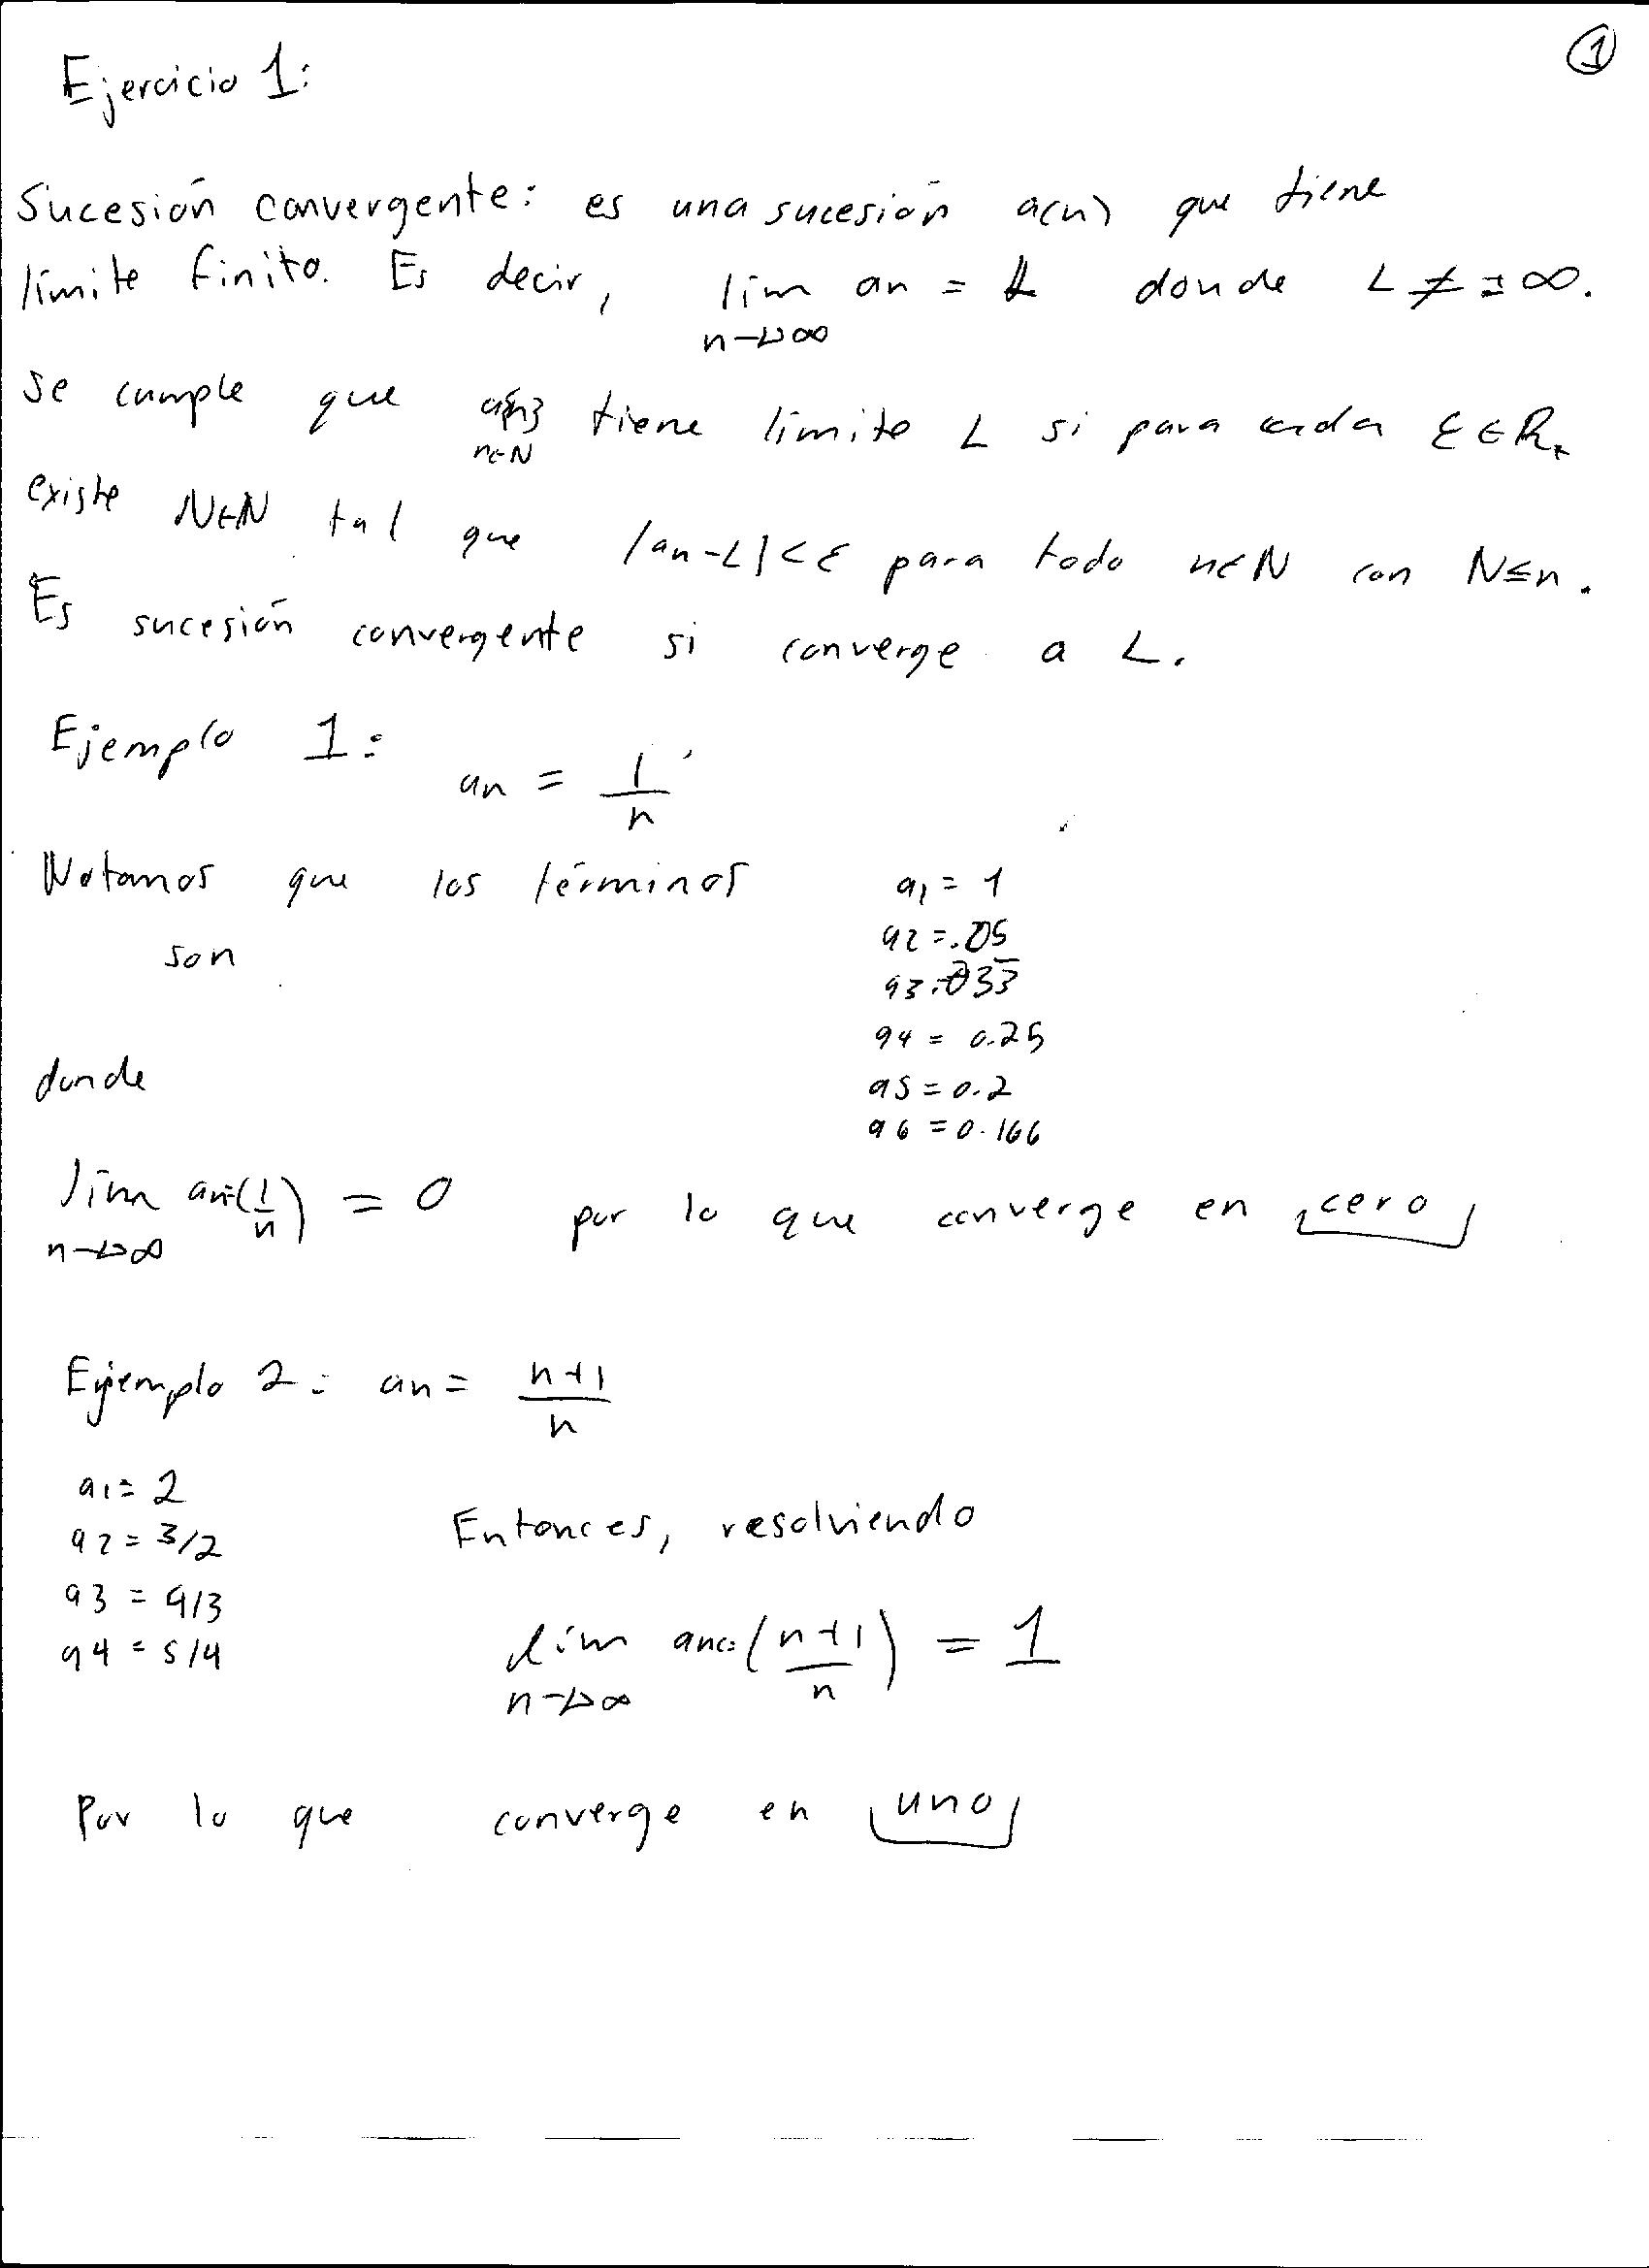 1
Ejercicio 1:
Sucesión convergente: es una sucesión a(n) que tiene
límite finito. Es decir, lím an = L donde L ≠ ±∞.
n→∞
se cumple que tiene límite L si para cada ε ∈ R+
n∈N
existe N∈N tal que |an-L|<ε para todo n∈N con N≤n.
Es sucesión convergente si converge a L.
Ejemplo 1:
an = 1/n
Notamos que los términos
son
a1 = 1
a2 = .05
a3 = 033
a4 = 0.25
a5 = 0.2
a6 = 0.166
donde
lím an=(1/n) = 0 por lo que converge en cero
n→∞
Ejemplo 2: an = n+1/n
a1 = 2
a2 = 3/2
a3 = 4/3
a4 = 5/4
Entonces, resolviendo
lím an=(n+1/n) = 1
n→∞
Por lo que converge en uno